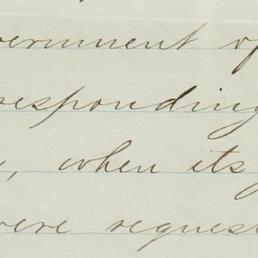 vernment of
responding
, when its
were request